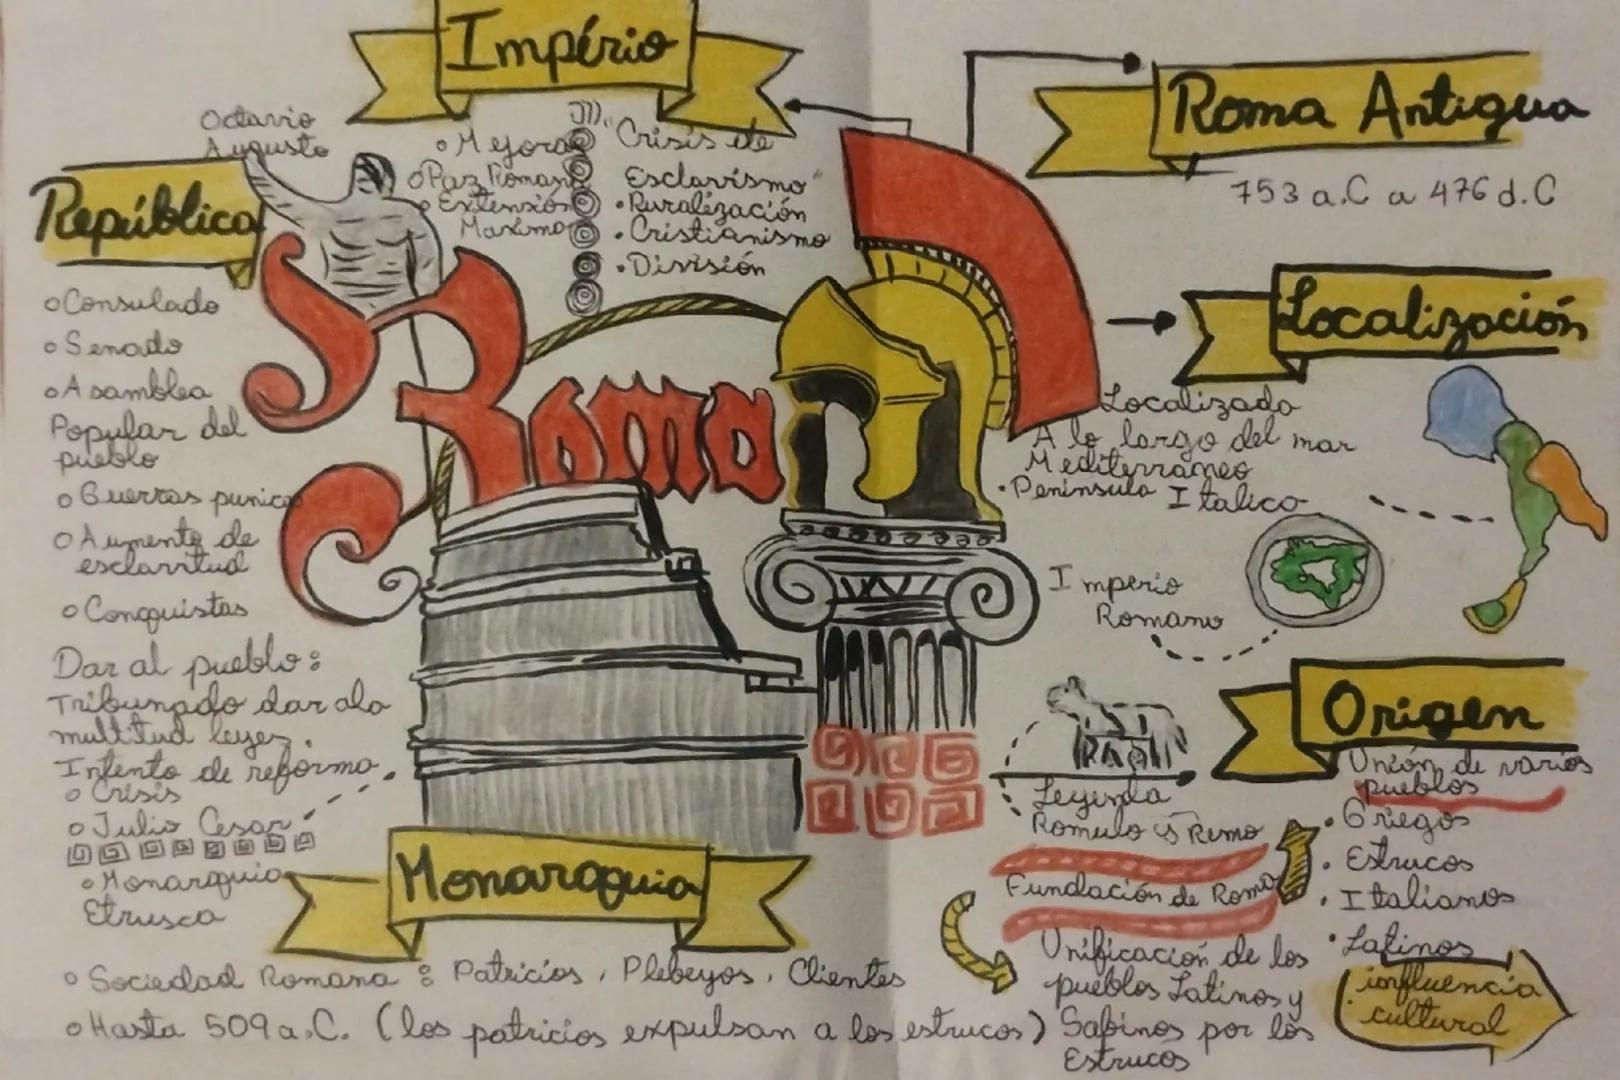 Império
Octavio
Augusto
o Mejoras
o Paz Romana
o Extensión
Maximo
III.
"Crisis de
Esclavismo"
• Ruralización
• Cristianismo
• División
Roma Antigua
753 a.C a 476 d.C
República
o Consulado
o Senado
o Asamblea
Popular del
pueblo
o Guerras punicas
o Aumento de
esclavitud
o Conquistas
Dar al pueblo:
Tribunado dar a la
multitud leyes.
Intento de reforma.
o Crisis
o Julio Cesar
Roma
Localización
Localizado
A lo largo del mar
Mediterráneo
• Península Italico
Imperio
Romano
Origen
Unión de varios
pueblos
• Griegos
• Estrucos
• Italianos
• Latinos
influencia
cultural
Leyenda
Romulo y Remo
Fundación de Roma
Unificación de los
pueblos Latinos y
Sabinos por los
Estrucos
Monarquia
• Monarquia
Etrusca
o Sociedad Romana: Patricios, Plebeyos, Clientes
o Hasta 509 a.C. (los patricios expulsan a los estrucos)